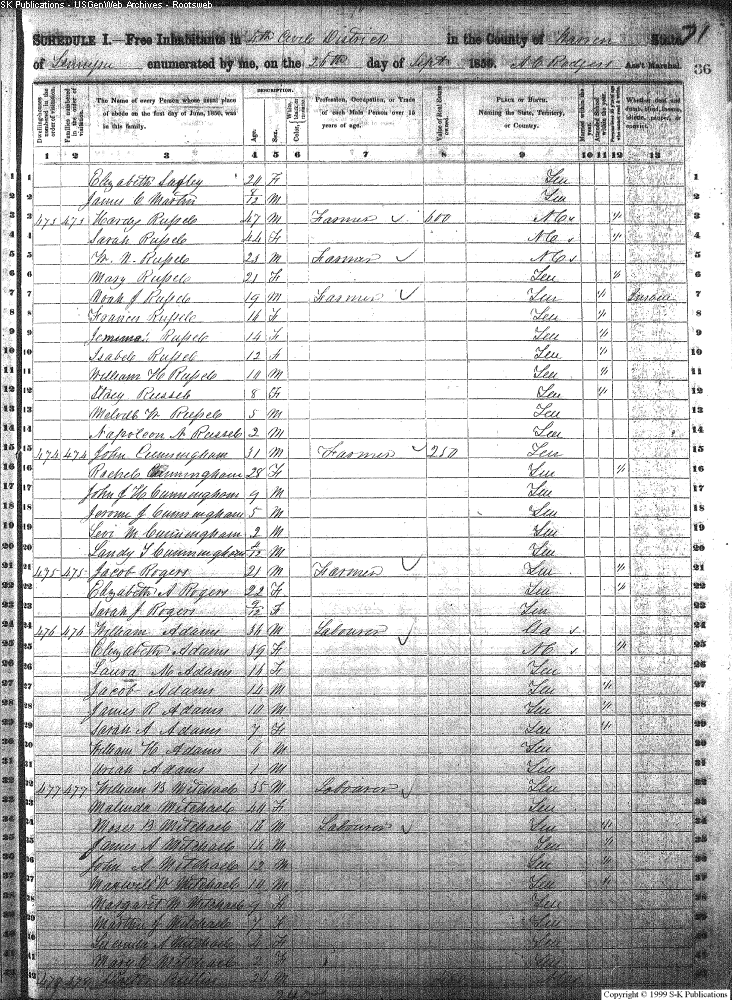 SK Publications - USGenWeb Archives - Rootsweb
SCHEDULE I.—Free Inhabitants in 4th Civil District in the County of Warren State 71
of Tennessee enumerated by me, on the 26th day of Sept 1850. Ass't Marshal. 36
Dwelling-houses numbered in the order of visitation.
Families numbered in the order of visitation.
The Name of every Person whose usual place of abode on the first day of June, 1850, was in this family.
DESCRIPTION.
Age.
Sex.
White, black, or mulatto.
Profession, Occupation, or Trade of each Male Person over 15 years of age.
Value of Real Estate owned.
PLACE OF BIRTH. Naming the State, Territory, or Country.
Married within the year.
Attended School within the year.
Whether deaf and dumb, blind, insane, idiotic, pauper, or convict.
1 2 3 4 5 6 7 8 9 10 11 12 13
1 Elizabeth 20 F Ten 1
2 James C Martin M Ten 2
3 473 473 Hardy Russell 47 M Farmer 600 NC 3
4 Sarah Russell 44 F NC 4
5 W. N. Russell 23 M Farmer NC 5
6 Mary Russell 21 F Ten 6
7 Noah J Russell 19 M Farmer Ten 7
8 Frances Russell 16 F Ten 8
9 Jemima Russell 14 F Ten 9
10 Isabel Russell 12 F Ten 10
11 William H Russell 10 M Ten 11
12 Stacy Russell 8 F Ten 12
13 Russell 5 M Ten 13
14 Napoleon A Russell 2 M Ten 14
15 474 474 John Cunningham 31 M Farmer 250 Ten 15
16 Rachel Cunningham 28 F Ten 16
17 John J H Cunningham 9 M Ten 17
18 Jerome J Cunningham 5 M Ten 18
19 Levi M Cunningham 2 M Ten 19
20 Landy T Cunningham M Ten 20
21 475 475 Jacob Rogers 21 M Farmer Ten 21
22 Elizabeth A Rogers 22 F Ten 22
23 Sarah J Rogers F Ten 23
24 476 476 William Adams 36 M Labourer 24
25 Elizabeth Adams 39 F NC 25
26 Laura M Adams 16 F Ten 26
27 Jacob Adams 14 M Ten 27
28 James R Adams 10 M Ten 28
29 Sarah A Adams 7 F Ten 29
30 William H Adams M Ten 30
31 Uriah Adams 1 M Ten 31
32 477 477 William B Mitchael 35 M Labourer Ten 32
33 Malinda Mitchael 40 F Ten 33
34 Moses B Mitchael 16 M Labourer Ten 34
35 James A Mitchael 14 M Ten 35
36 John A Mitchael 12 M Ten 36
37 Maxwell W Mitchael 10 M Ten 37
38 Margaret M Mitchael 9 F Ten 38
39 Martha J Mitchael 7 F Ten 39
40 Mitchael 4 F Ten 40
41 Mary Mitchael 2 F Ten 41
42 478 478 M 42
Copyright © 1999 S-K Publications